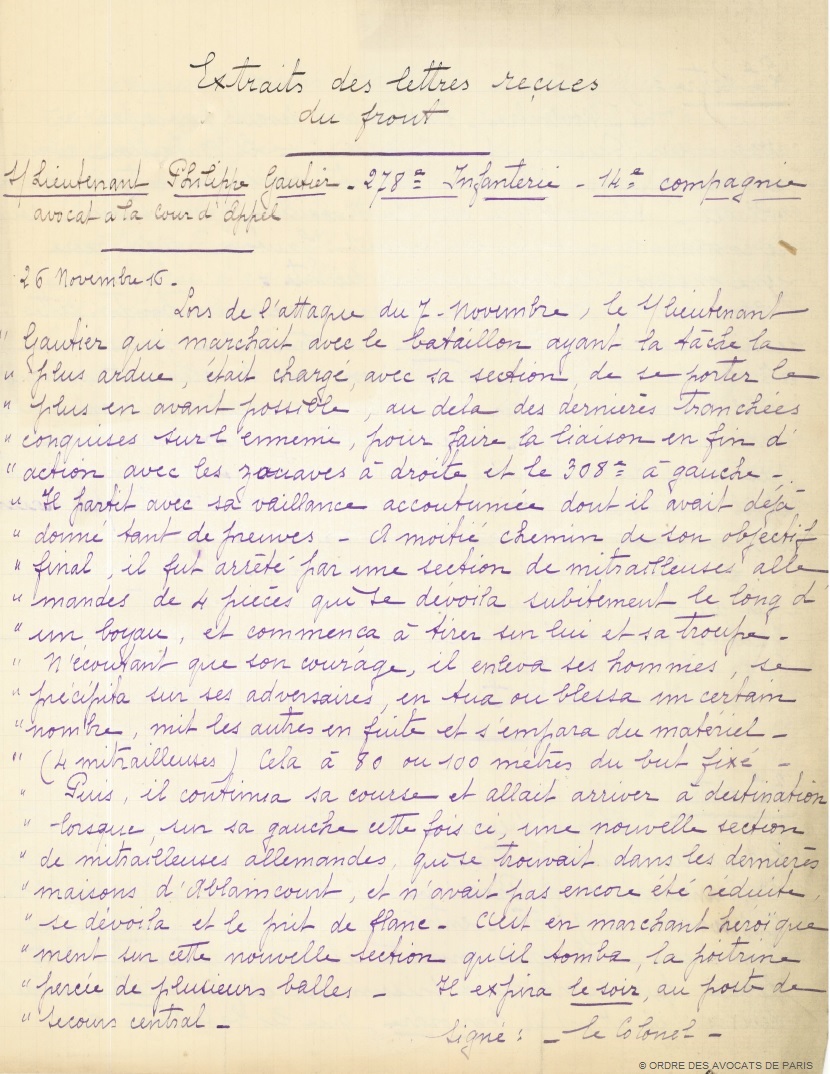 Extraits des lettres reçues
du front
S/Lieutenant Philippe Gautier - 278e Infanterie - 14e compagnie
avocat a la Cour d'Appel
26 Novembre 16 -
Lors de l'attaque du 7 - Novembre, le S/lieutenant
" Gautier qui marchait avec le bataillon ayant la tâche la
" plus ardue, était chargé, avec sa section, de se porter le
" plus en avant possible, au dela des dernières tranchées
" conquises sur l'ennemi, pour faire la liaison en fin d'
" action avec les zouaves à droite et le 308e à gauche -
" Il partit avec sa vaillance accoutumée dont il avait déjà
" donné tant de preuves - A moitié chemin de son objectif
" final, il fut arrêté par une section de mitrailleuses alle
" mandes de 4 pièces qui se dévoila subitement le long d'
" un boyau, et commença à tirer sur lui et sa troupe -
" N'écoutant que son courage, il enleva ses hommes, se
" précipita sur ses adversaires, en tua ou blessa un certain
" nombre, mit les autres en fuite et s'empara du matériel -
" (4 mitrailleuses) Cela à 80 ou 100 mètres du but fixé -
" Puis, il continua sa course et allait arriver à destination
" lorsque, sur sa gauche cette fois ci, une nouvelle section
" de mitrailleuses allemandes, qui se trouvait dans les dernières
" maisons d'Ablaincourt, et n'avait pas encore été réduite,
" se dévoila et le prit de flanc - C'est en marchant heroïque
" ment sur cette nouvelle section qu'il tomba, la poitrine
" percée de plusieurs balles - Il expira le soir, au poste de
" secours central -
Signé : - le Colonel -
© ORDRE DES AVOCATS DE PARIS